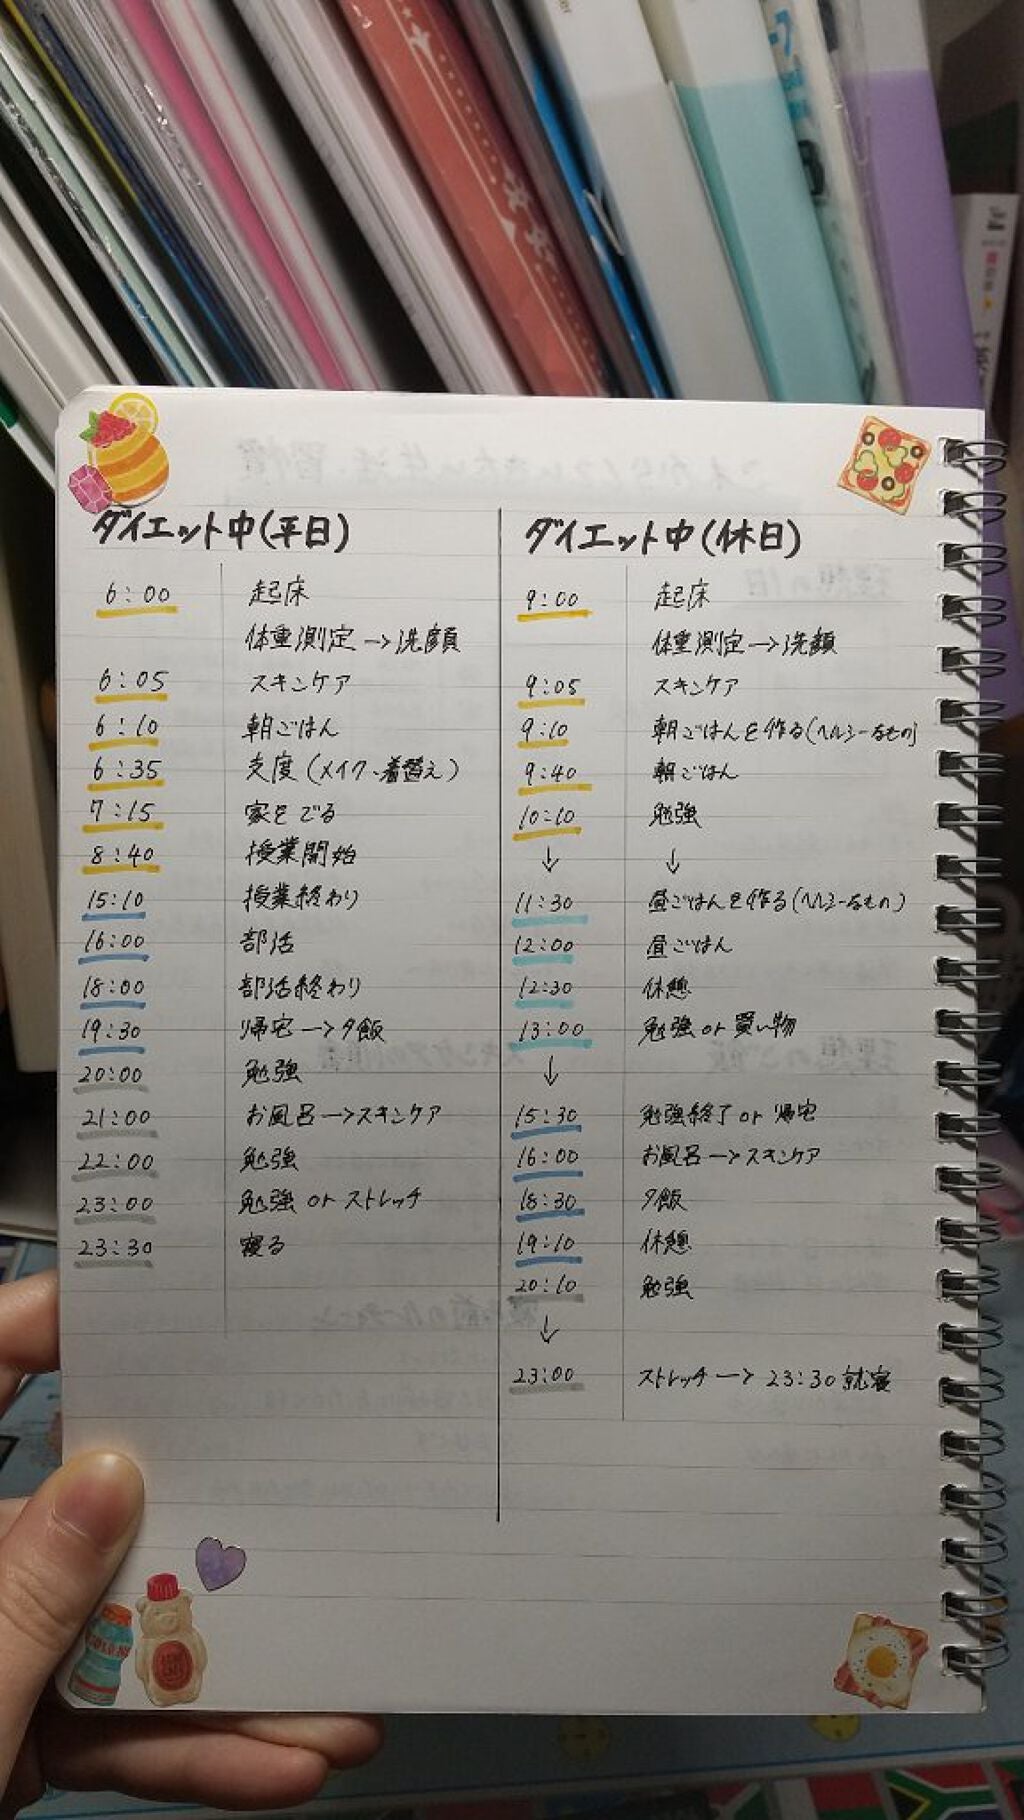 ダイエット中(平日)
6:00 起床
体重測定→洗顔
6:05 スキンケア
6:10 朝ごはん
6:35 支度(メイク・着替え)
7:15 家をでる
8:40 授業開始
15:10 授業終わり
16:00 部活
18:00 部活終わり
19:30 帰宅→夕飯
20:00 勉強
21:00 お風呂→スキンケア
22:00 勉強
23:00 勉強 or ストレッチ
23:30 寝る
ダイエット中(休日)
9:00 起床
体重測定→洗顔
9:05 スキンケア
9:10 朝ごはんを作る(ヘルシーなもの)
9:40 朝ごはん
10:10 勉強
↓ ↓
11:30 昼ごはんを作る(ヘルシーなもの)
12:00 昼ごはん
12:30 休憩
13:00 勉強 or 買い物
↓
15:30 勉強終了 or 帰宅
16:00 お風呂→スキンケア
18:30 夕飯
19:10 休憩
20:10 勉強
↓
23:00 ストレッチ→23:30 就寝